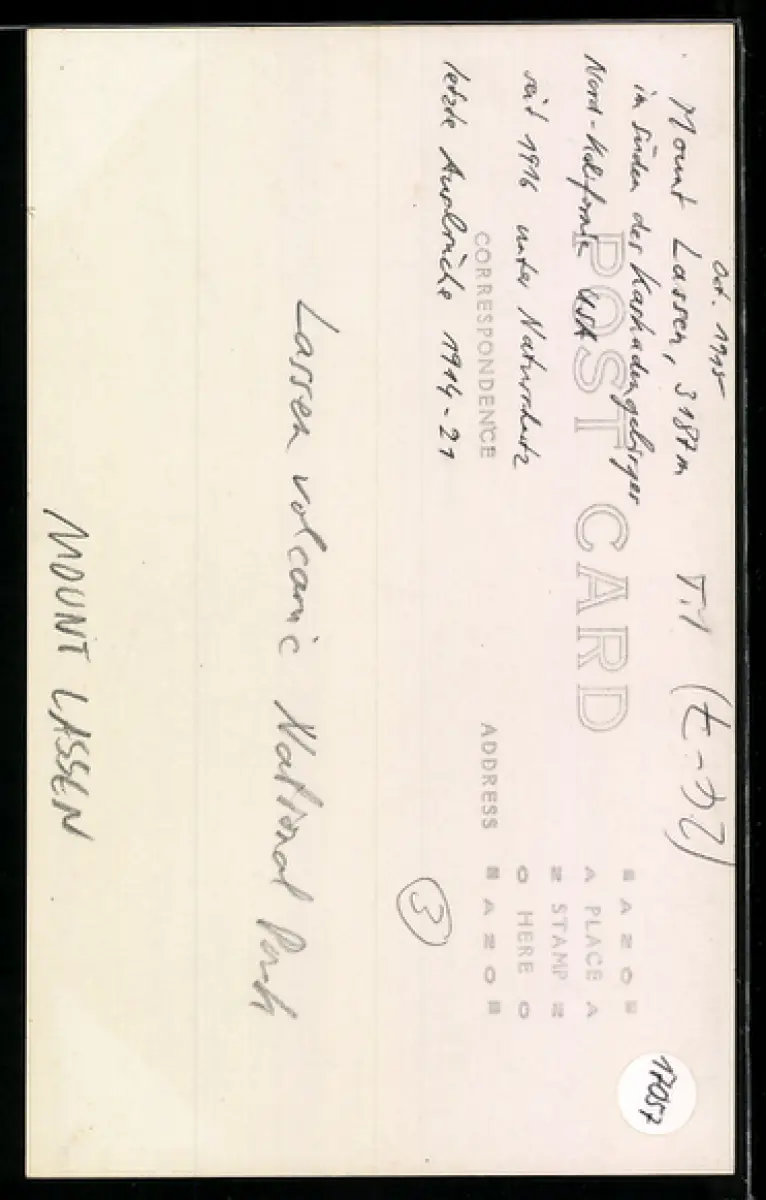 Oct. 1915
Mount Lassen, 3187 m
im Süden des Kaskadengebirges
Nord-Kalifornien USA
seit 1916 unter Naturschutz
letzte Ausbrüche 1914-21
POST CARD
CORRESPONDENCE
ADDRESS
A Z O
A PLACE A
Z STAMP Z
O HERE O
A Z O
3
17057
Lassen volcanic National Park
MOUNT LASSEN